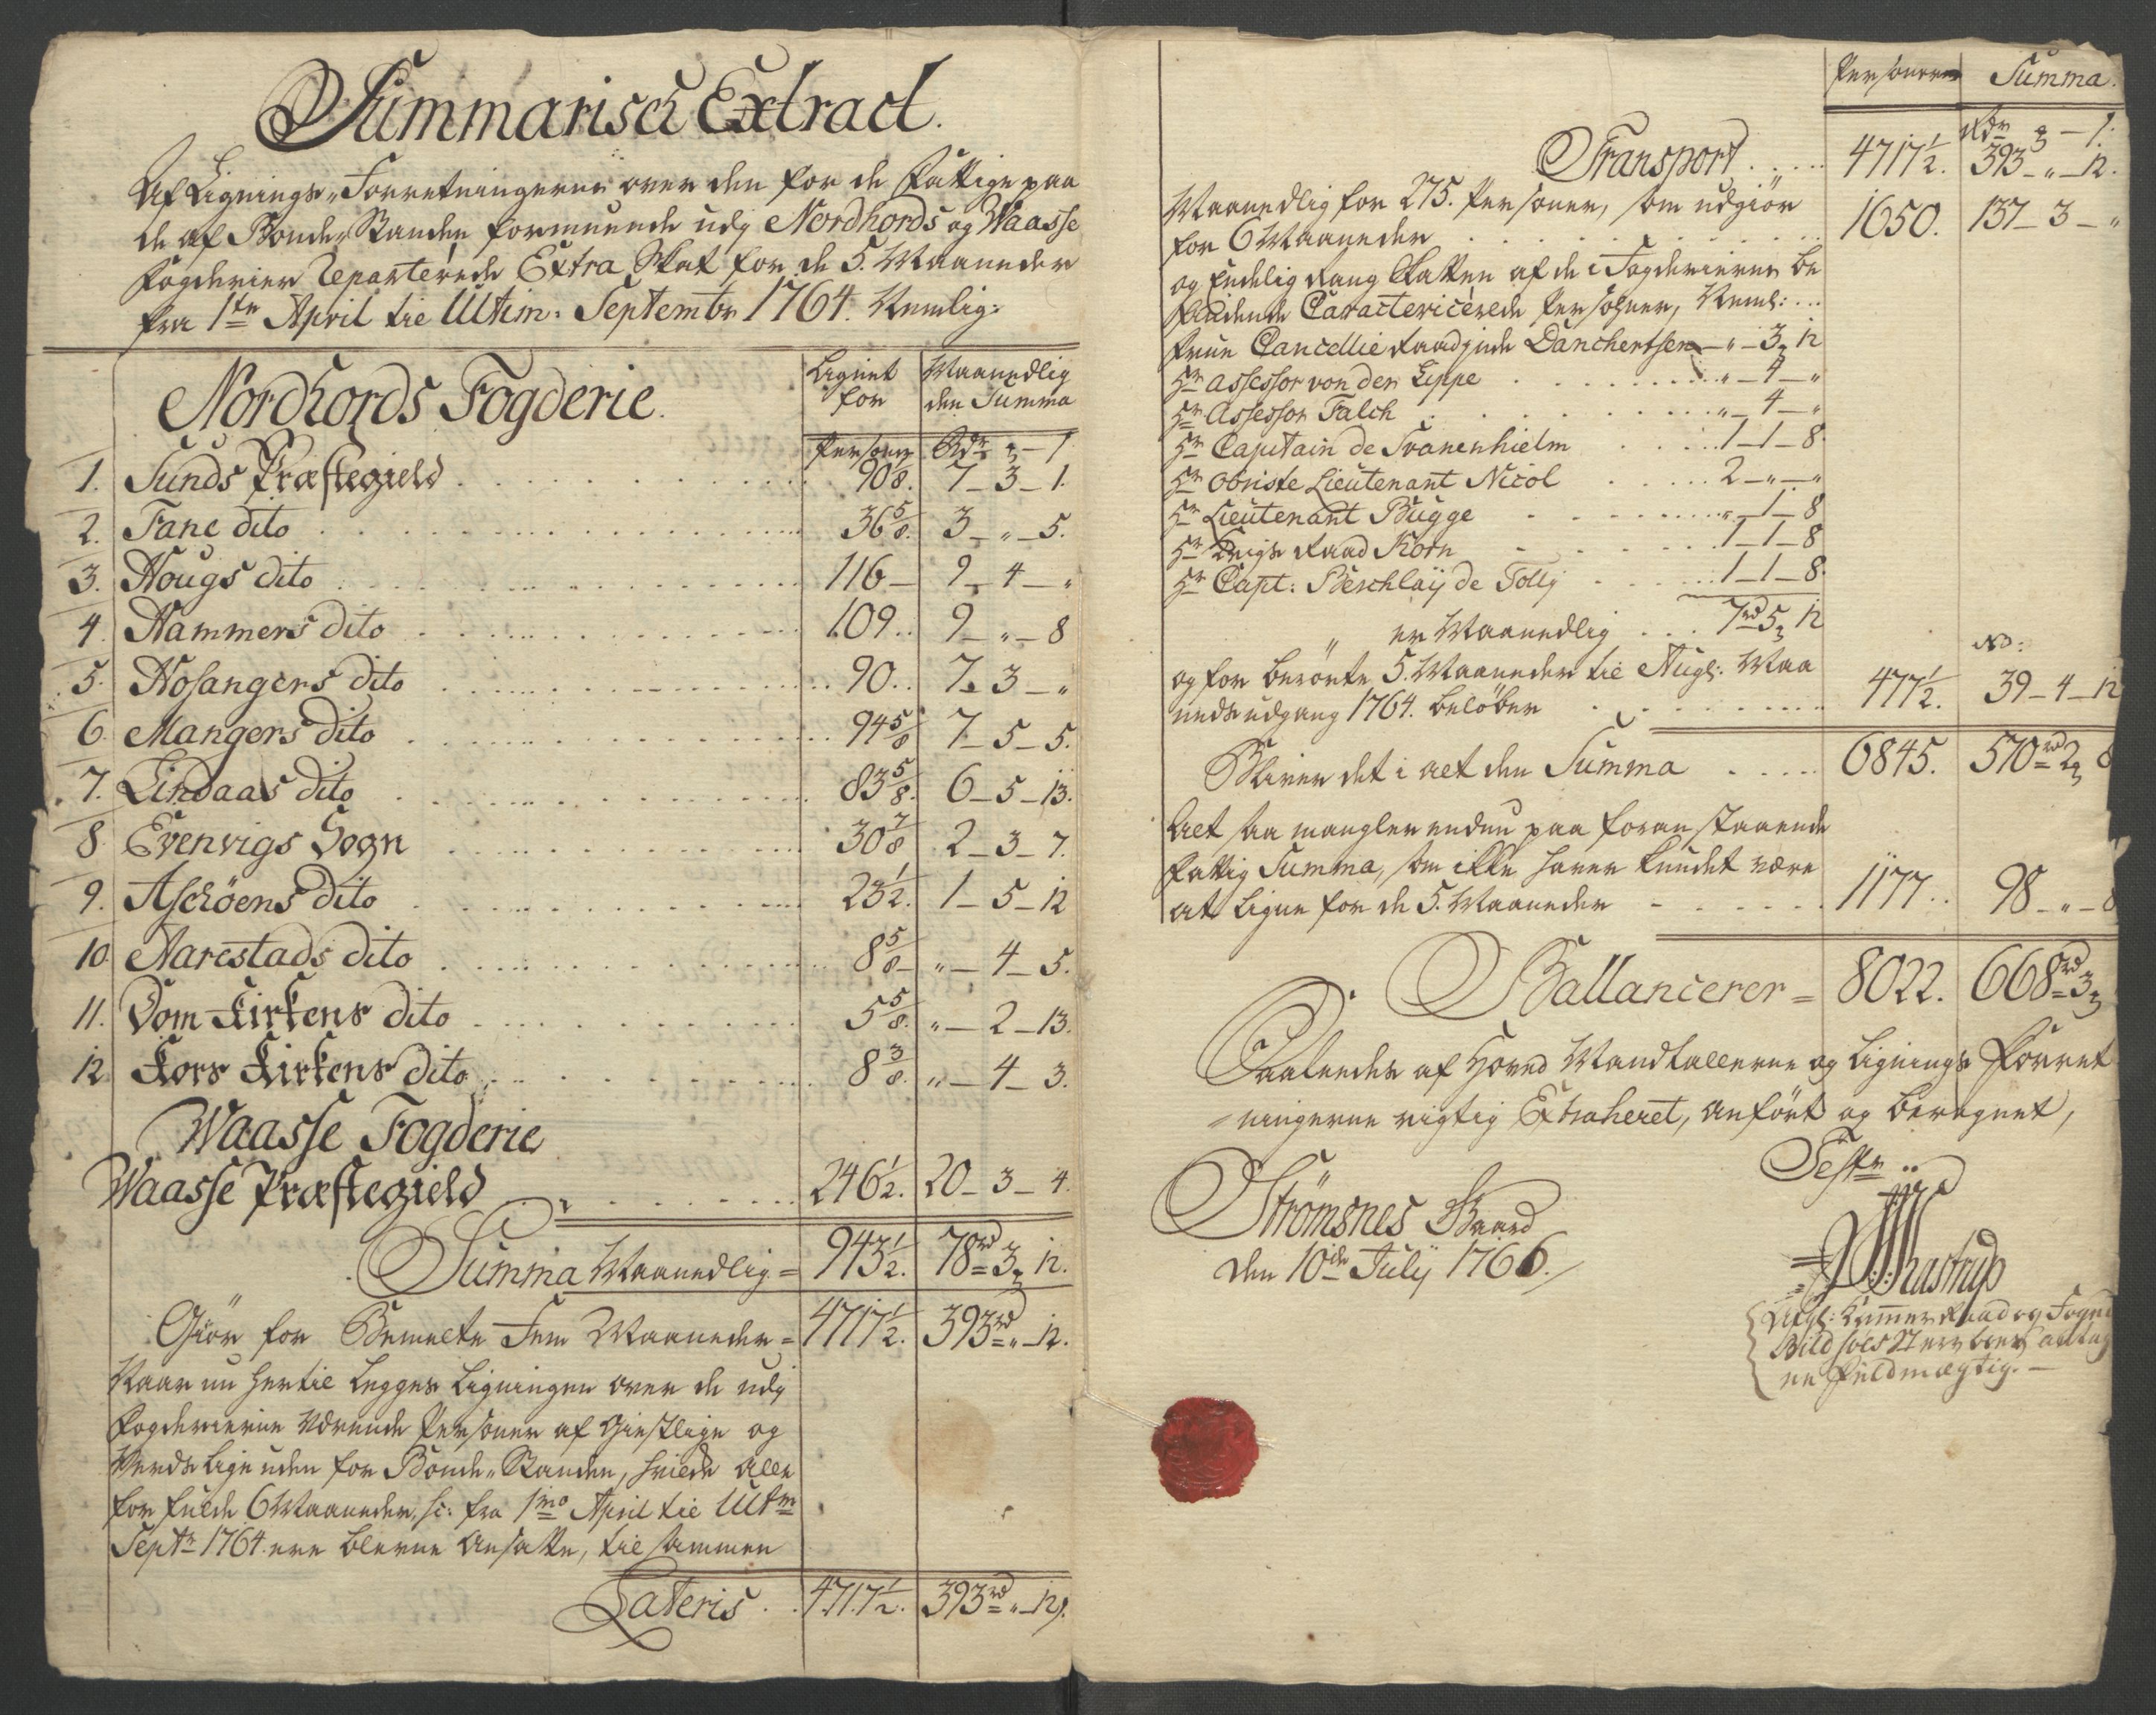 Summarisch Extract.
Af Lignings-Forretningerne over den for de Fattige paa
de af Bonde-Standen formuende udj Nordhords og Waasse
Fogderier Reparterede Extra Skat for de 5. Maaneder
fra 1ste April til Ultim: Septembr 1764. Nemlig:
Lignet for Maanedlig den Summa
Nordhords Fogderie.
Personer Rdr ꝣ - 1
1. Sunds Præstegield . . . 90 1/8. 7 - 3 - 1.
2. Fane dito . . . 36 5/8. 3 - " - 5.
3. Hougs dito . . . 116 - 9 - 4 - "
4. Hammers dito . . . 109.. 9 - " - 8
5. Hosangers dito . . . 90.. 7 - 3 - "
6. Mangers dito . . . 94 5/8 7 - 5 - 5.
7. Lindaas dito . . . 83 5/8. 6 - 5 - 13.
8. Evenvigs Sogn . . . 30 7/8 2 - 3 - 7.
9. Aschöens dito . . . 23 1/2. 1 - 5 - 12
10. Aarestads dito . . . 8 5/8 - " - 4 - 5.
11. Dom-Kirkens dito . . . 5 5/8. " - 2 - 13.
12. Kors Kirkens dito . . . 8 3/8. " - 4 - 3.
Waasse Fogderie
Waasse Præstegield . . . 246 1/2. 20 - 3 - 4.
Summa Maanedlig = 943 1/2. 78rd 3ꝣ 12.
Giör for Bemelte Fem Maaneder = 4717 1/2. 393rd " - 12.
Naar nu hertil Legges Ligningen over de udj
Fogderierne værende Personer af Giestlige og
Verdslige uden for Bonde-Standen, hvilde alle
for fulde 6 Maaneder, sc: fra 1mo April til Ultm
Septr 1764. ere blevne Ansatte, til sammen
Lateris . . 4717 1/2. 393rd " - 12ꝣ.
Personer Summa.
Rdr ꝣ - 1.
Transport . . . 4717 1/2. 393 - " - 12.
Maanedlig for 275. Personer, som udgiör
for 6 Maaneder . . . 1650. 137 - 3 - "
og Endelig Rang Skatten af de i Fogderierne be
findende Caracteriserede Personer, Neml: ...
Frue Cancellie Raadjnde Danchertsen - " - 3ꝣ 12
Hr Assessor von der Lippe . . . " - 4 - "
Hr Assessor Falch . . . " - 4 - "
Hr Capitain de Svanenhielm . . . 1 - 1 - 8.
Hr Obriste Lieutenant Nicol . . . 2 - " - "
Hr Lieutenant Bugge . . . " - 1 - 8
Hr Krigs Raad Korn . . . 1 - 1 - 8
Hr Capt: Berchlaÿ de Tolly . . . 1 - 1 - 8.
er Maanedlig . . . 7rd 5ꝣ 12
NB:
og for berörte 5. Maaneder til Augs: Maa
neds udgang 1764. belöber . . . 477 1/2. 39 - 4 - 12
Bliver det i alt den Summa . . . 6845. 570rd 2ꝣ 8
Alt saa mangler endnu paa foranstaaende
Fattig Summa, som ikke haver kundet være
at Ligne for de 5. Maaneder - . . . 1177.. 98 - " - 8
Ballancerer = 8022. 668rd 3ꝣ
Saaledes af Hoved Mandtallerne og Lignings Forret
=ningerne rigtig Extraheret, anfört og beregnet,
Test:
Strömsnes Gaard
den 10de Julij 1766.
Afgl: Kammer Raad og Foged
Bildsöes Sterboes antag
ne Fuldmægtig. -